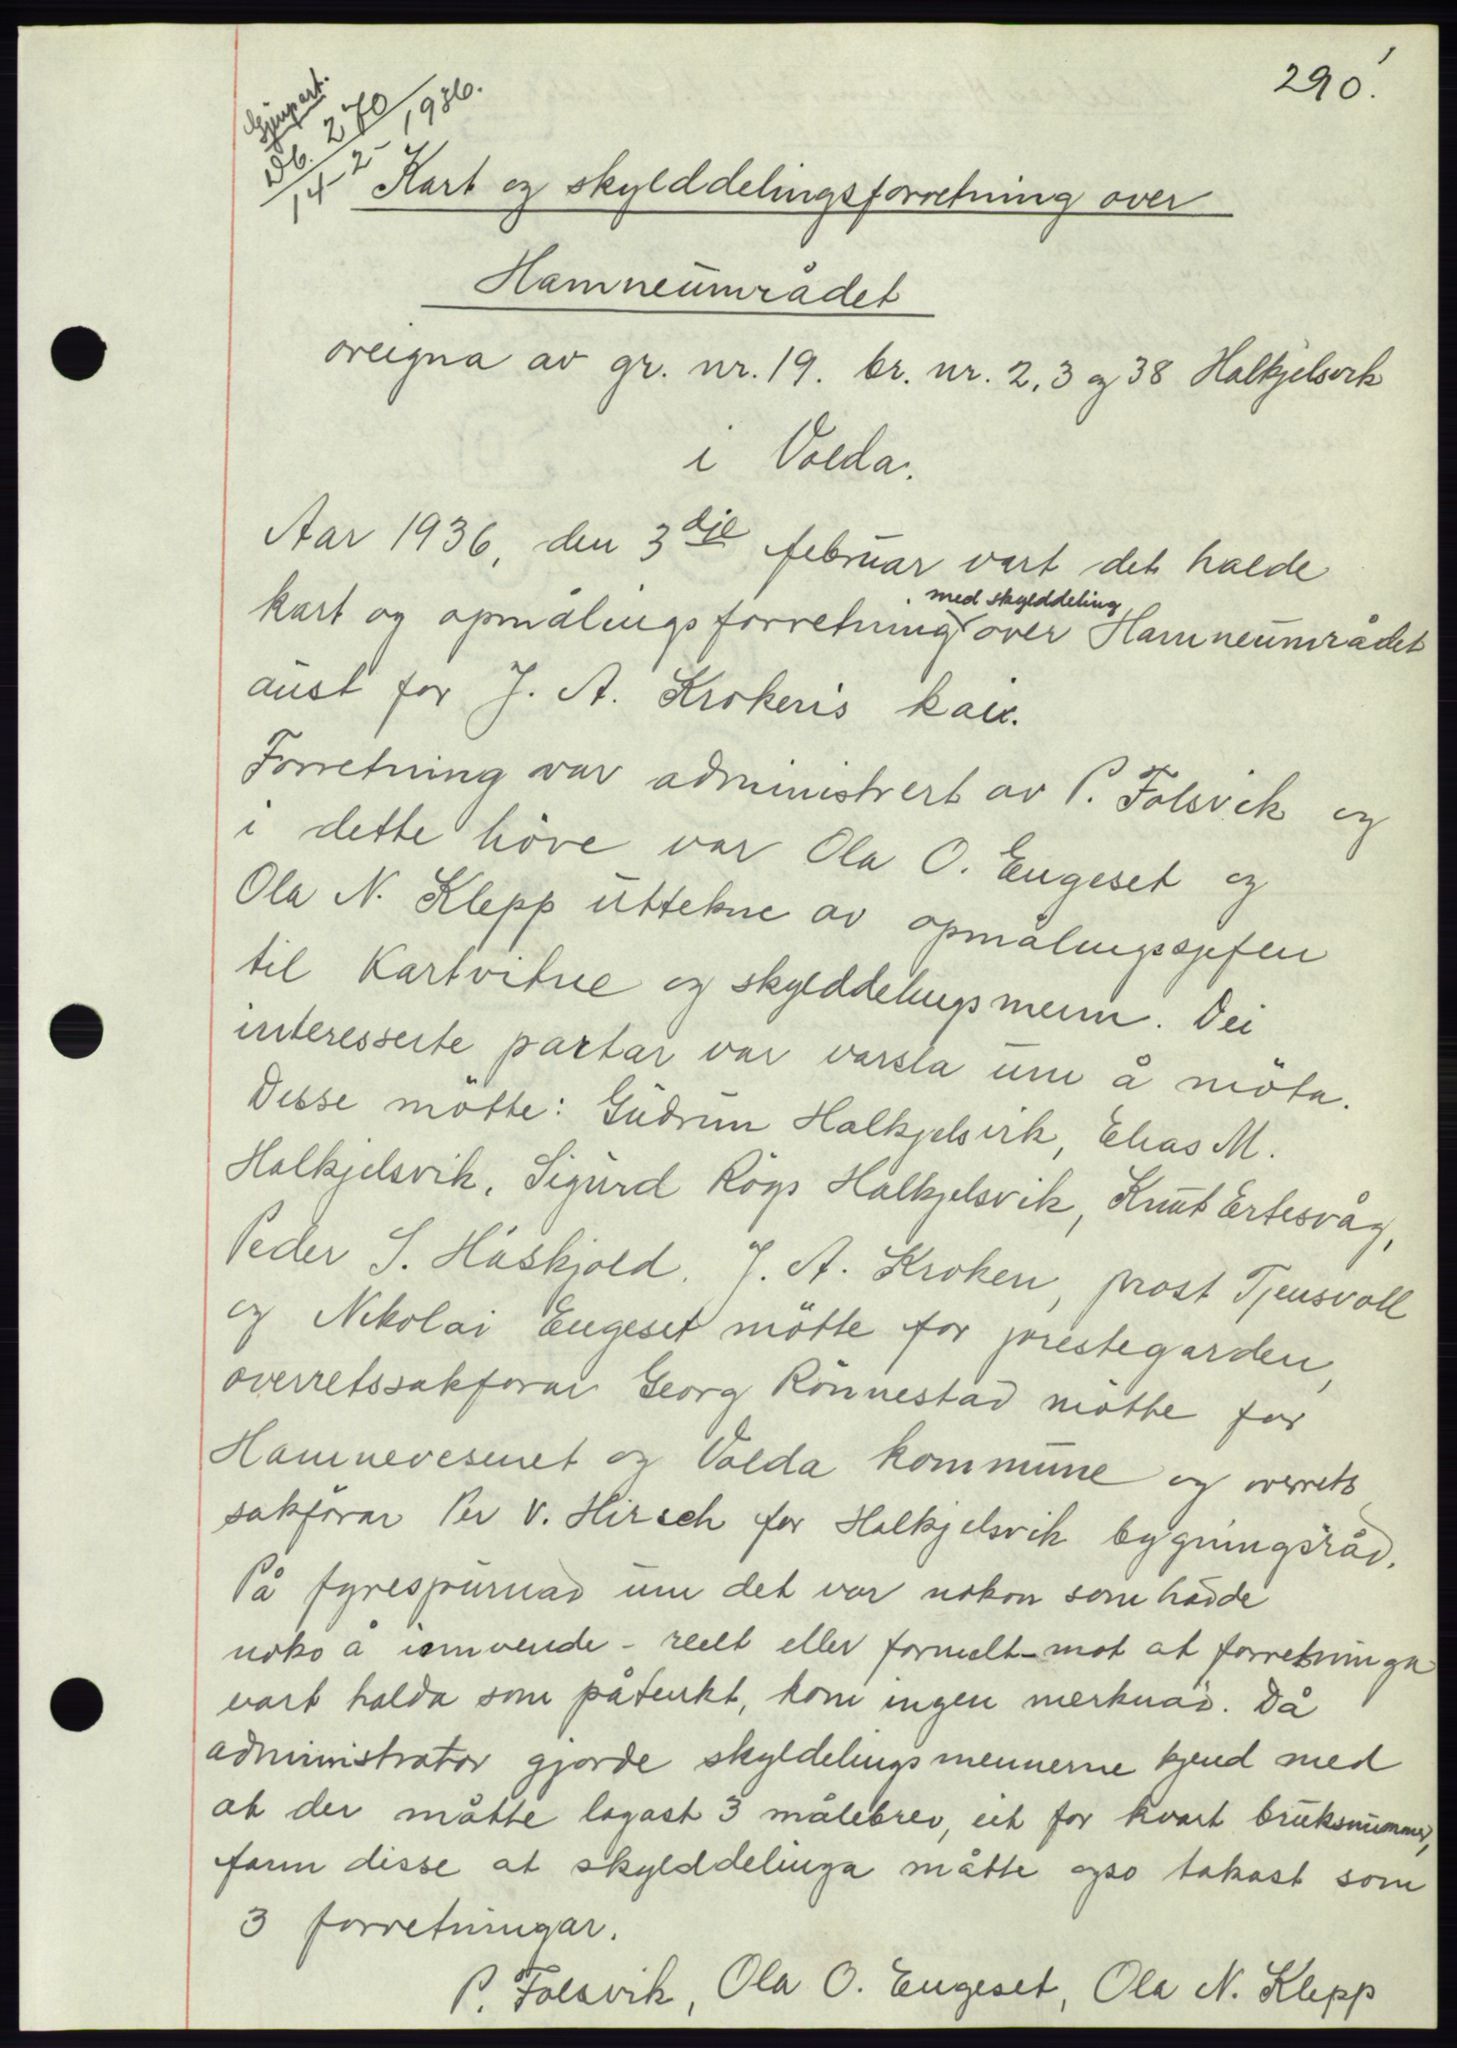 290.
Gjenpart.
Db. 270
14-2-1936.
Kart og skylddelingsforretning over
Hamneumrådet
oreigna av gr. nr. 19. br. nr. 2, 3 og 38 Halkjelsvik
i Volda.
Aar 1936, den 3dje februar vart det halde
med skylddeling
kart og opmålingsforretning over Hamneumrådet
aust for J. A. Kroken's kai.
Forretning var administrert av P. Folsvik og
i dette höve var Ola O. Engeset og
Ola N. Klepp uttekne av opmålingssjefen
til Kartvitne og skylddelingsmenn. Dei
interesserte partar var varsla um å möta.
Disse mötte: Gudrun Halkjelsvik, Elias M.
Halkjelsvik, Sigurd Rögs Halkjelsvik, Knut Ertesvåg,
Peder S. Håskjold, J. A. Kroken, prost Tjensvoll
og Nikolai Engeset mötte for prestegarden,
overretssakförar Georg Rönnestad mötte for
Hamnevesenet og Volda kommune og overrets
sakförar Per V. Hirsch for Halkjelsvik bygningsråd.
På fyrespurnad um det var nokon som hadde
noko å innvende - reelt eller formelt - mot at forretninga
vart halda som påtenkt, kom ingen merknad. Då
administrator gjorde skyldelingsmennerne kjend med
at der måtte lagast 3 målebrev, eit for kvart bruksnummer,
fann disse at skylddelinga måtte ogso takast som
3 forretningar.
P. Folsvik, Ola O. Engeset, Ola N. Klepp